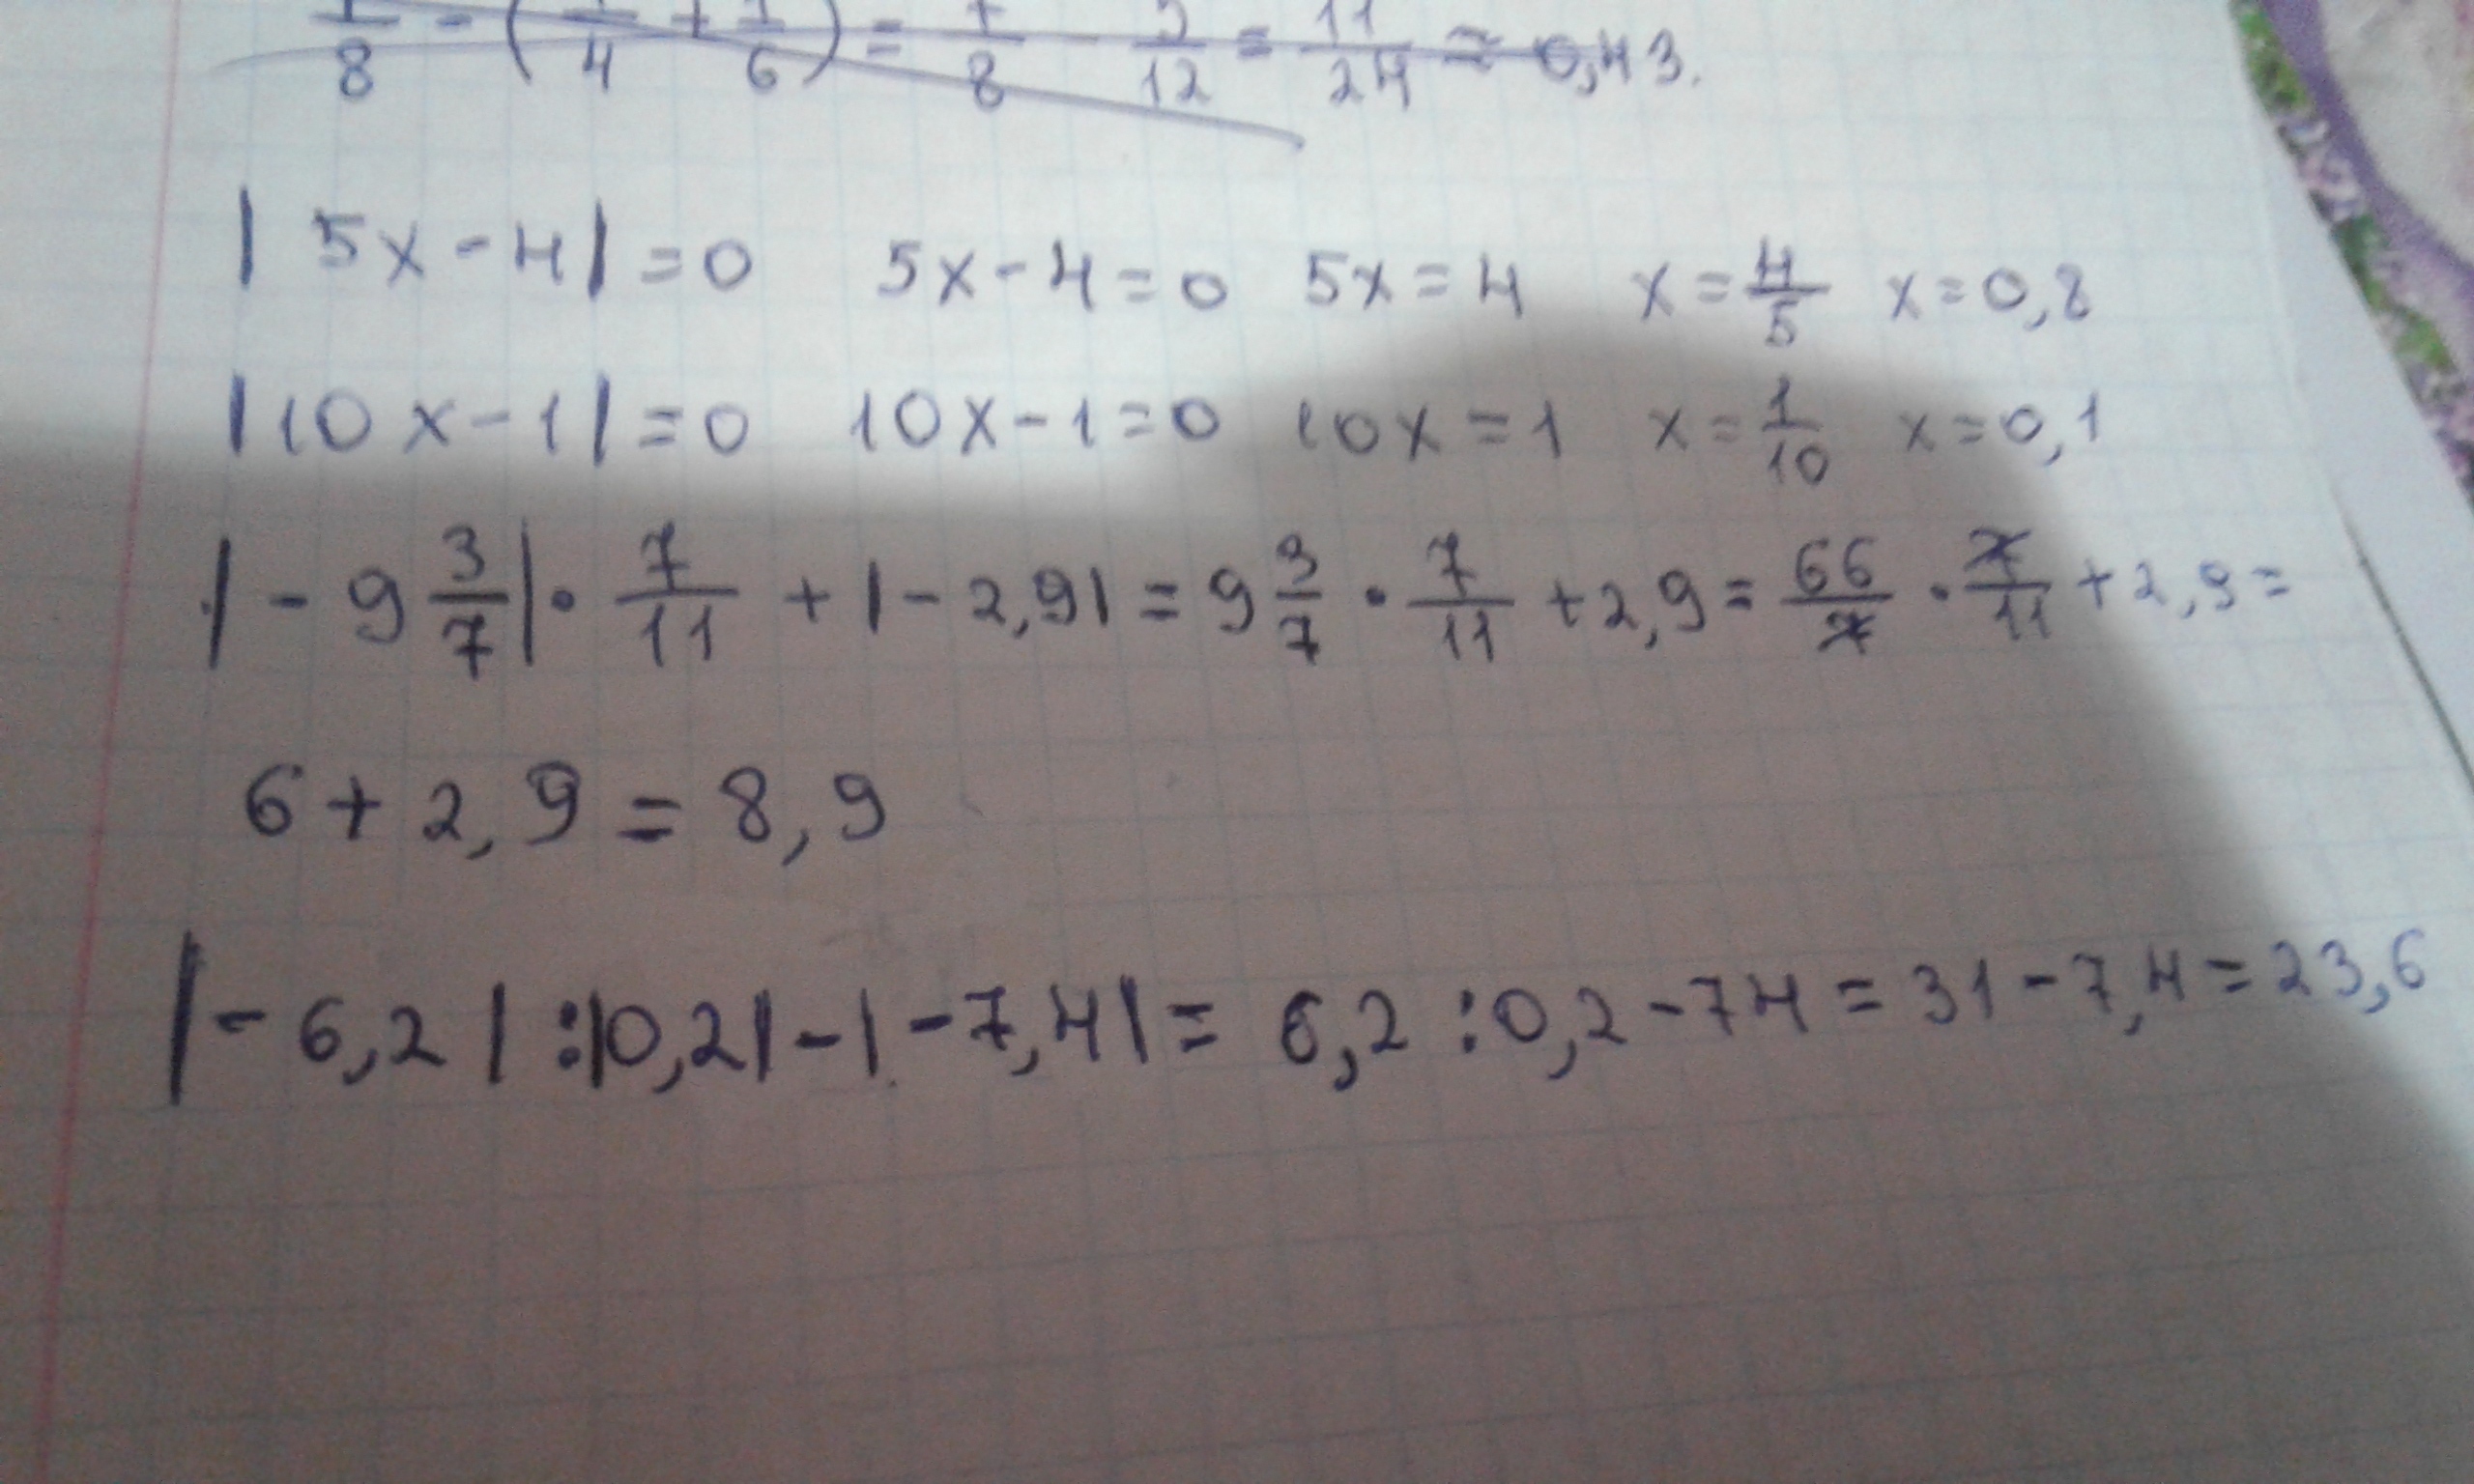 /8 - (/4 + /6) = /8 - /12 = 11/24 ≈ 0,43.
|5x-4|=0 5x-4=0 5x=4 x=4/5 x=0,8
|10x-1|=0 10x-1=0 10x=1 x=1/10 x=0,1
|-9 3/7| · 7/11 + |-2,9| = 9 3/7 · 7/11 + 2,9 = 66/7 · 7/11 + 2,9 =
6 + 2,9 = 8,9
|-6,2| : |0,2| - |-7,4| = 6,2 : 0,2 - 74 = 31 - 7,4 = 23,6